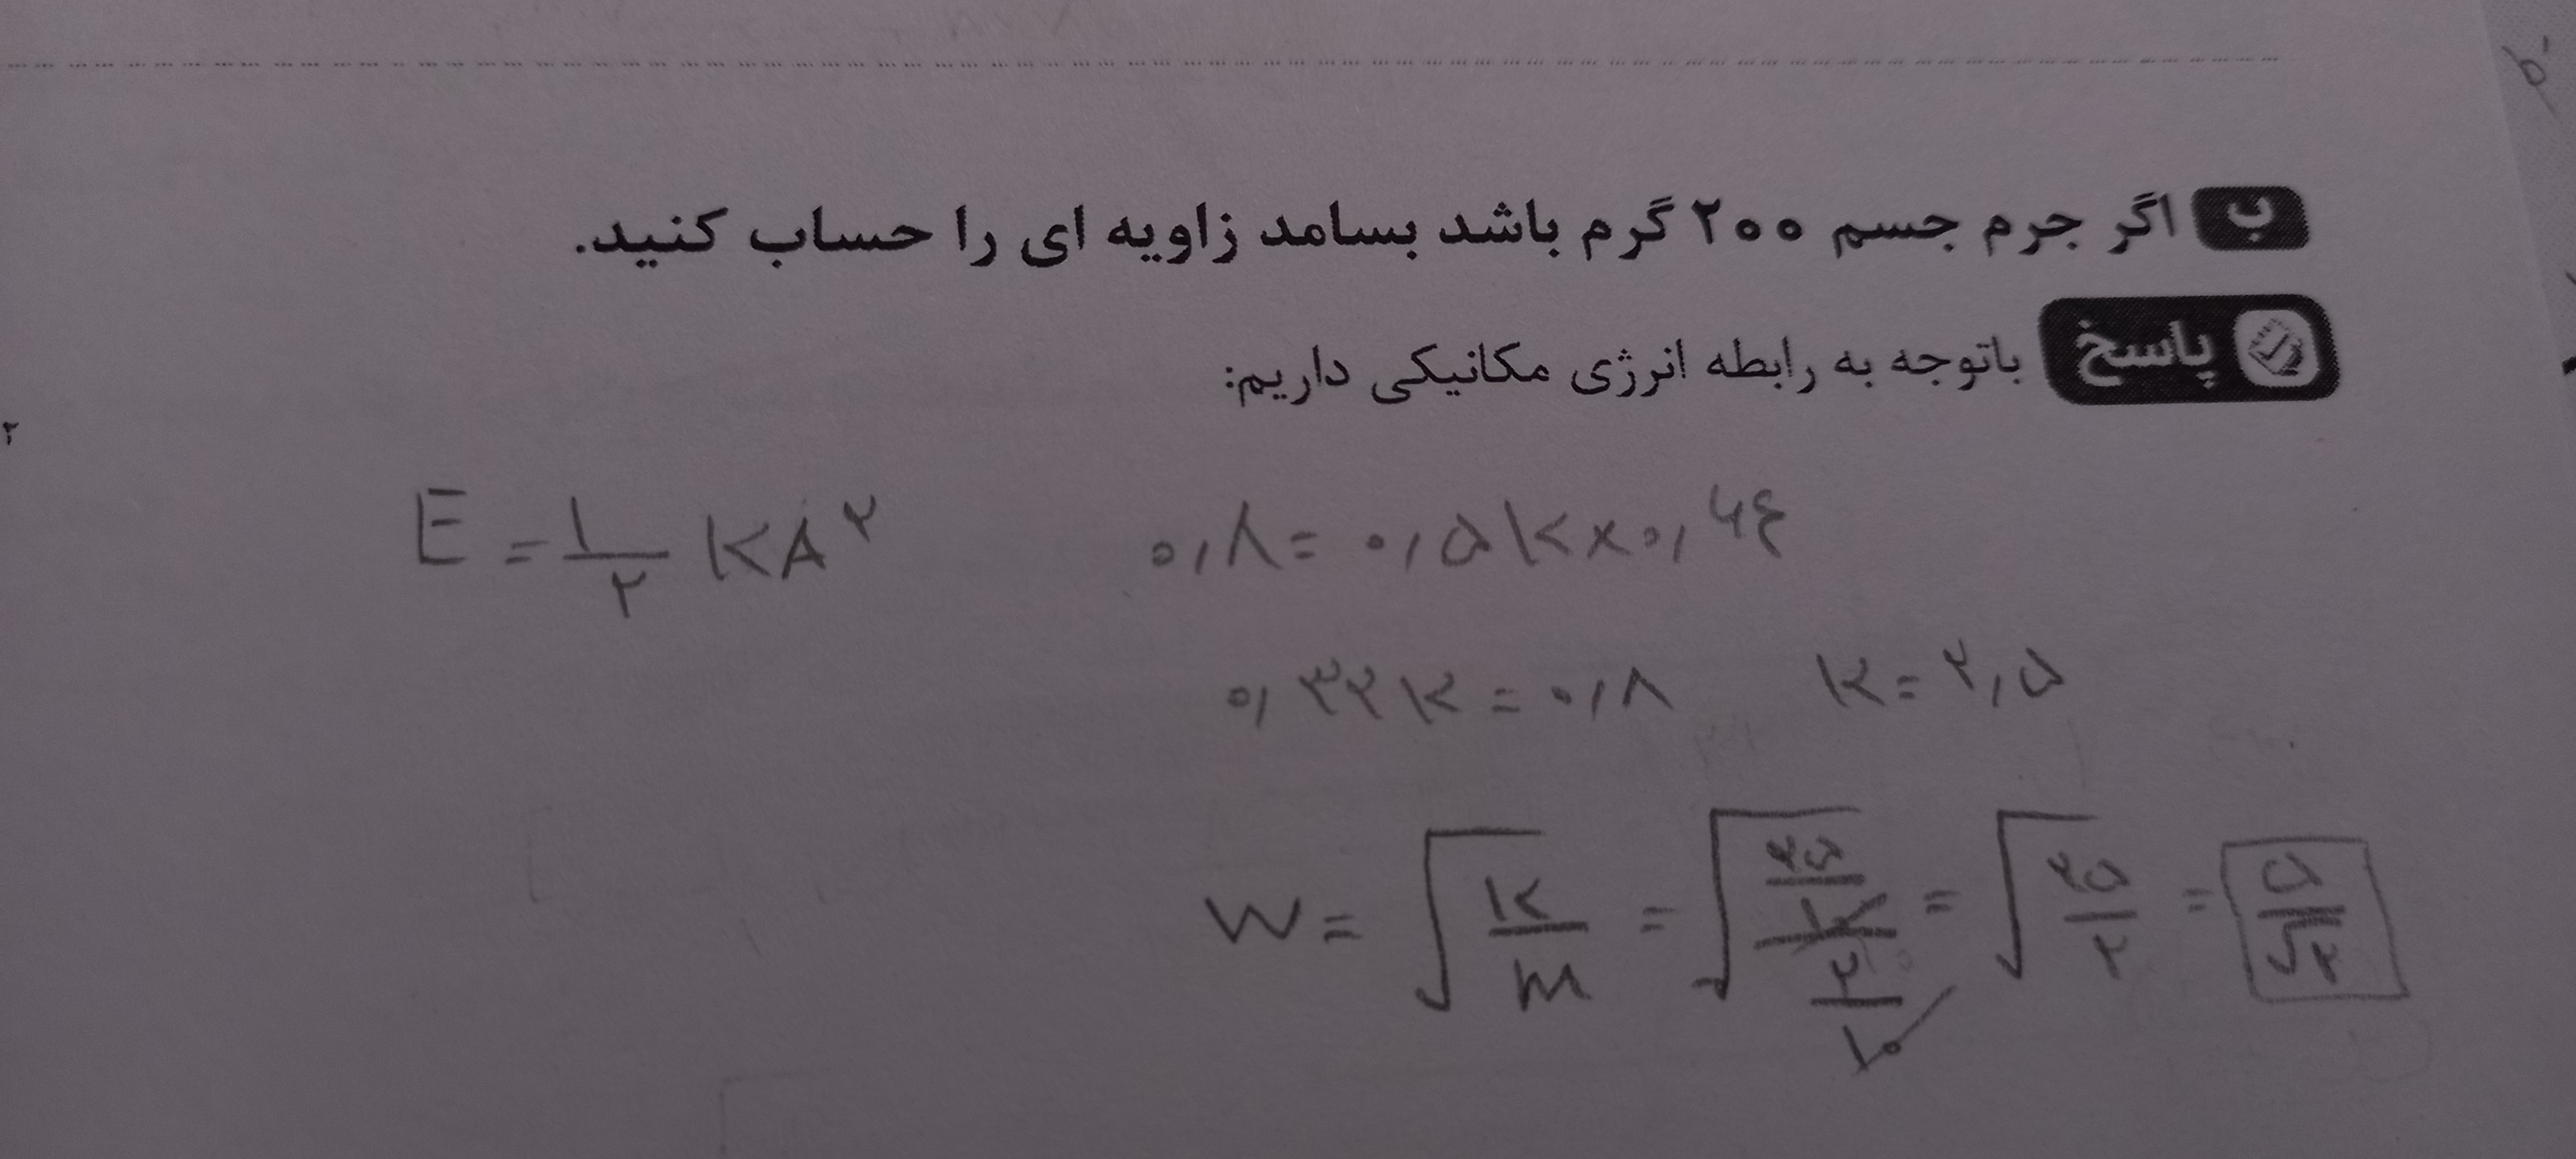 ب اگر جرم جسم ۲۰۰ گرم باشد بسامد زاویه ای را حساب کنید.
پاسخ باتوجه به رابطه انرژی مکانیکی داریم:
۲
E = ۱/۲ KA^۲ ۰,۸ = ۰,۵ K × ۰,۶۴
۰,۳۲ K = ۰,۸ K = ۲,۵
W = √(K/m) = √((۲۵/۱۰)/(۲/۱۰)) = √(۲۵/۲) = ۵/√۲